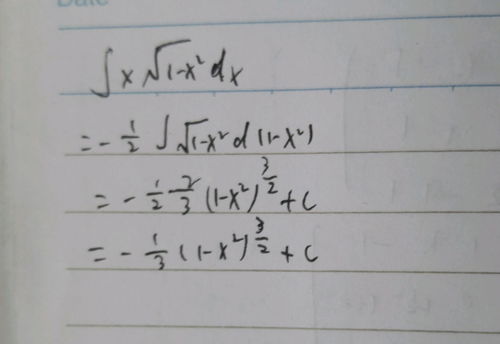 Date
∫x√(1-x²) dx
= -1/2 ∫√(1-x²) d(1-x²)
= -1/2 · 2/3 (1-x²)^(3/2) + C
= -1/3 (1-x²)^(3/2) + C